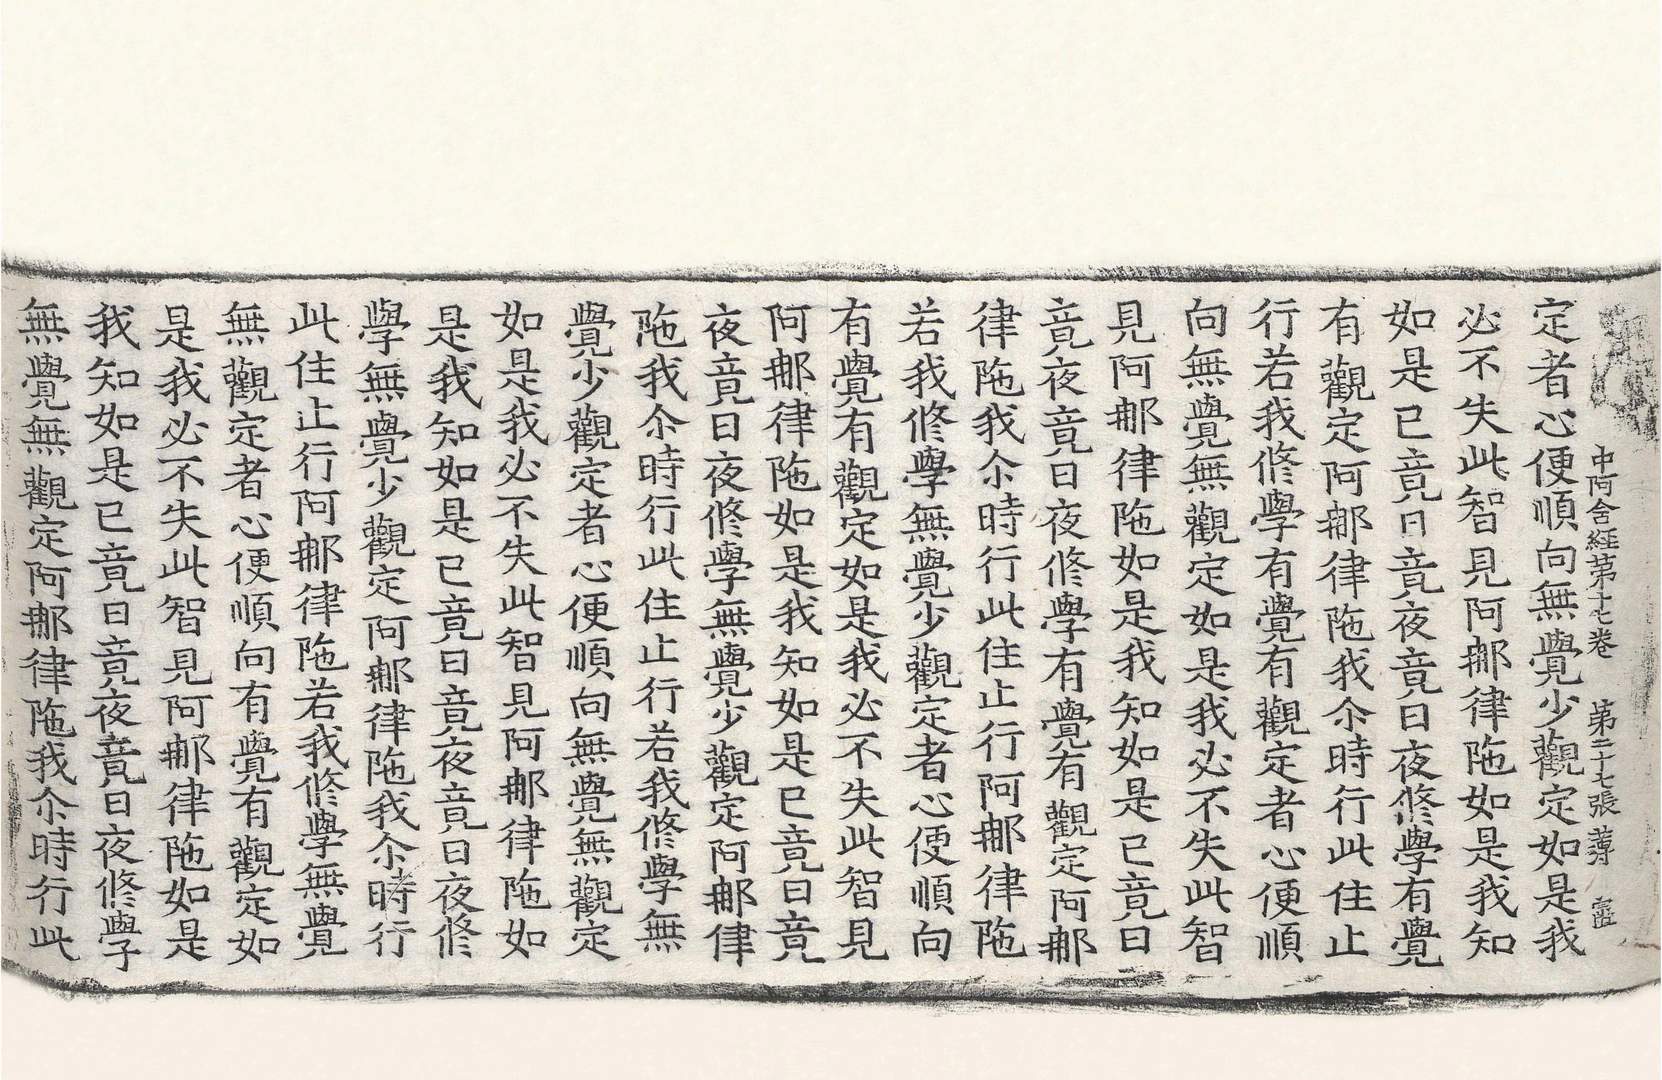 中阿含経第十七卷 第二十七張 薄
定者心便順向無覺少觀定如是我
必不失此智見阿郍律陁如是我知
如是已竟日竟夜竟日夜修學有覺
有觀定阿郍律陁我尒時行此住止
行若我修學有覺有觀定者心便順
向無覺無觀定如是我必不失此智
見阿郍律陁如是我知如是已竟日
竟夜竟日夜修學有覺有觀定阿郍
律陁我尒時行此住止行阿郍律陁
若我修學無覺少觀定者心便順向
有覺有觀定如是我必不失此智見
阿郍律陁如是我知如是已竟日竟
夜竟日夜修學無覺少觀定阿郍律
陁我尒時行此住止行若我修學無
覺少觀定者心便順向無覺無觀定
如是我必不失此智見阿郍律陁如
是我知如是已竟日竟夜竟日夜修
學無覺少觀定阿郍律陁我尒時行
此住止行阿郍律陁若我修學無覺
無觀定者心便順向有覺有觀定如
是我必不失此智見阿郍律陁如是
我知如是已竟日竟夜竟日夜修學
無覺無觀定阿郍律陁我尒時行此